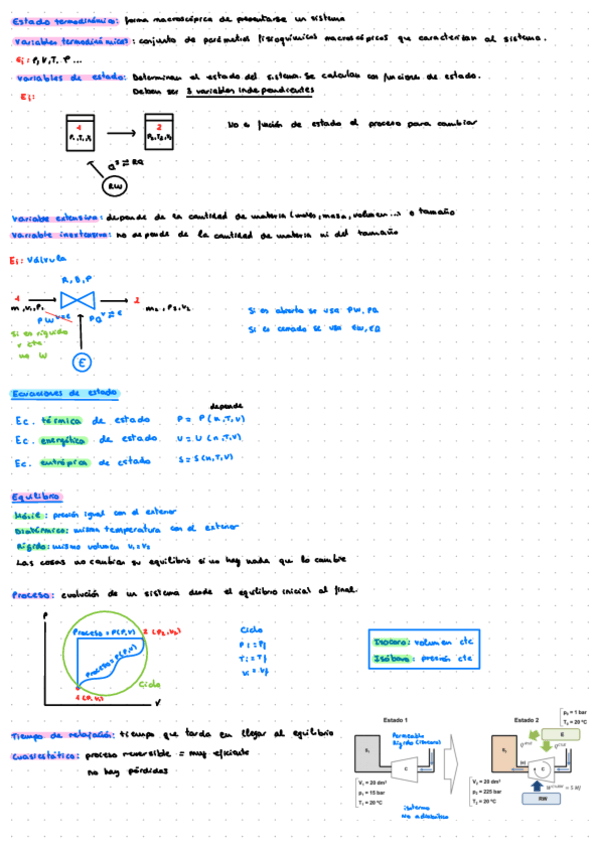 Estado termodinámico: forma macroscópica de presentarse un sistema
Variables termodinámicas: conjunto de parámetros fisicoquímicos macroscópicos que caracterizan al sistema.
Ej: P, V, T, ρ ...
Variables de estado: Determinan el estado del sistema. Se calculan con funciones de estado.
Deben ser 3 variables independientes
Ej:
1
P₁, T₁, V₁
2
P₂, T₂, V₂
No es función de estado el proceso para cambiar
RW
Variable extensiva: depende de la cantidad de materia (moles, masa, volumen...) o tamaño
Variable inextensiva: no depende de la cantidad de materia ni del tamaño
Ej: Válvula
R, D, P
1
2
m, V₁, P₁
m₂, P₂, V₂
Si es rígido
V cte
no W
E
Si es abierta se usa PW, PQ
Si es cerrado se usa EW, EQ
Ecuaciones de estado
depende
Ec. térmica de estado P = P(n,T,V)
Ec. energética de estado U = U(n,T,V)
Ec. entrópica de estado S = S(n,T,V)
Equilibrio
Móvil: presión igual con el exterior
Diatérmico: misma temperatura con el exterior
Rígido: mismo volumen V₁=V₂
Las cosas no cambian su equilibrio si no hay nada que lo cambie
Proceso: evolución de un sistema desde el equilibrio inicial al final.
P
Proceso = P(P,V)
2 (P₂,V₂)
Proceso = P(P,V)
Ciclo
1 (P₁,V₁)
V
Ciclo
Pi = Pf
Ti = Tf
Vi = Vf
Isocoro: volumen cte
Isóbaro: presión cte
Tiempo de relajación: tiempo que tarda en llegar al equilibrio
Cuasiestático: proceso reversible = muy eficiente
no hay pérdidas
Estado 1
Permeable
Rígido (isocoro)
S₁
C
V₁ = 20 dm³
p₁ = 15 bar
T₁ = 20 ºC
isotermo
no adiabático
Estado 2
p₀ = 1 bar
T₀ = 20 ºC
E
S₁
C
V₂ = 20 dm³
p₂ = 225 bar
T₂ = 20 ºC
RW